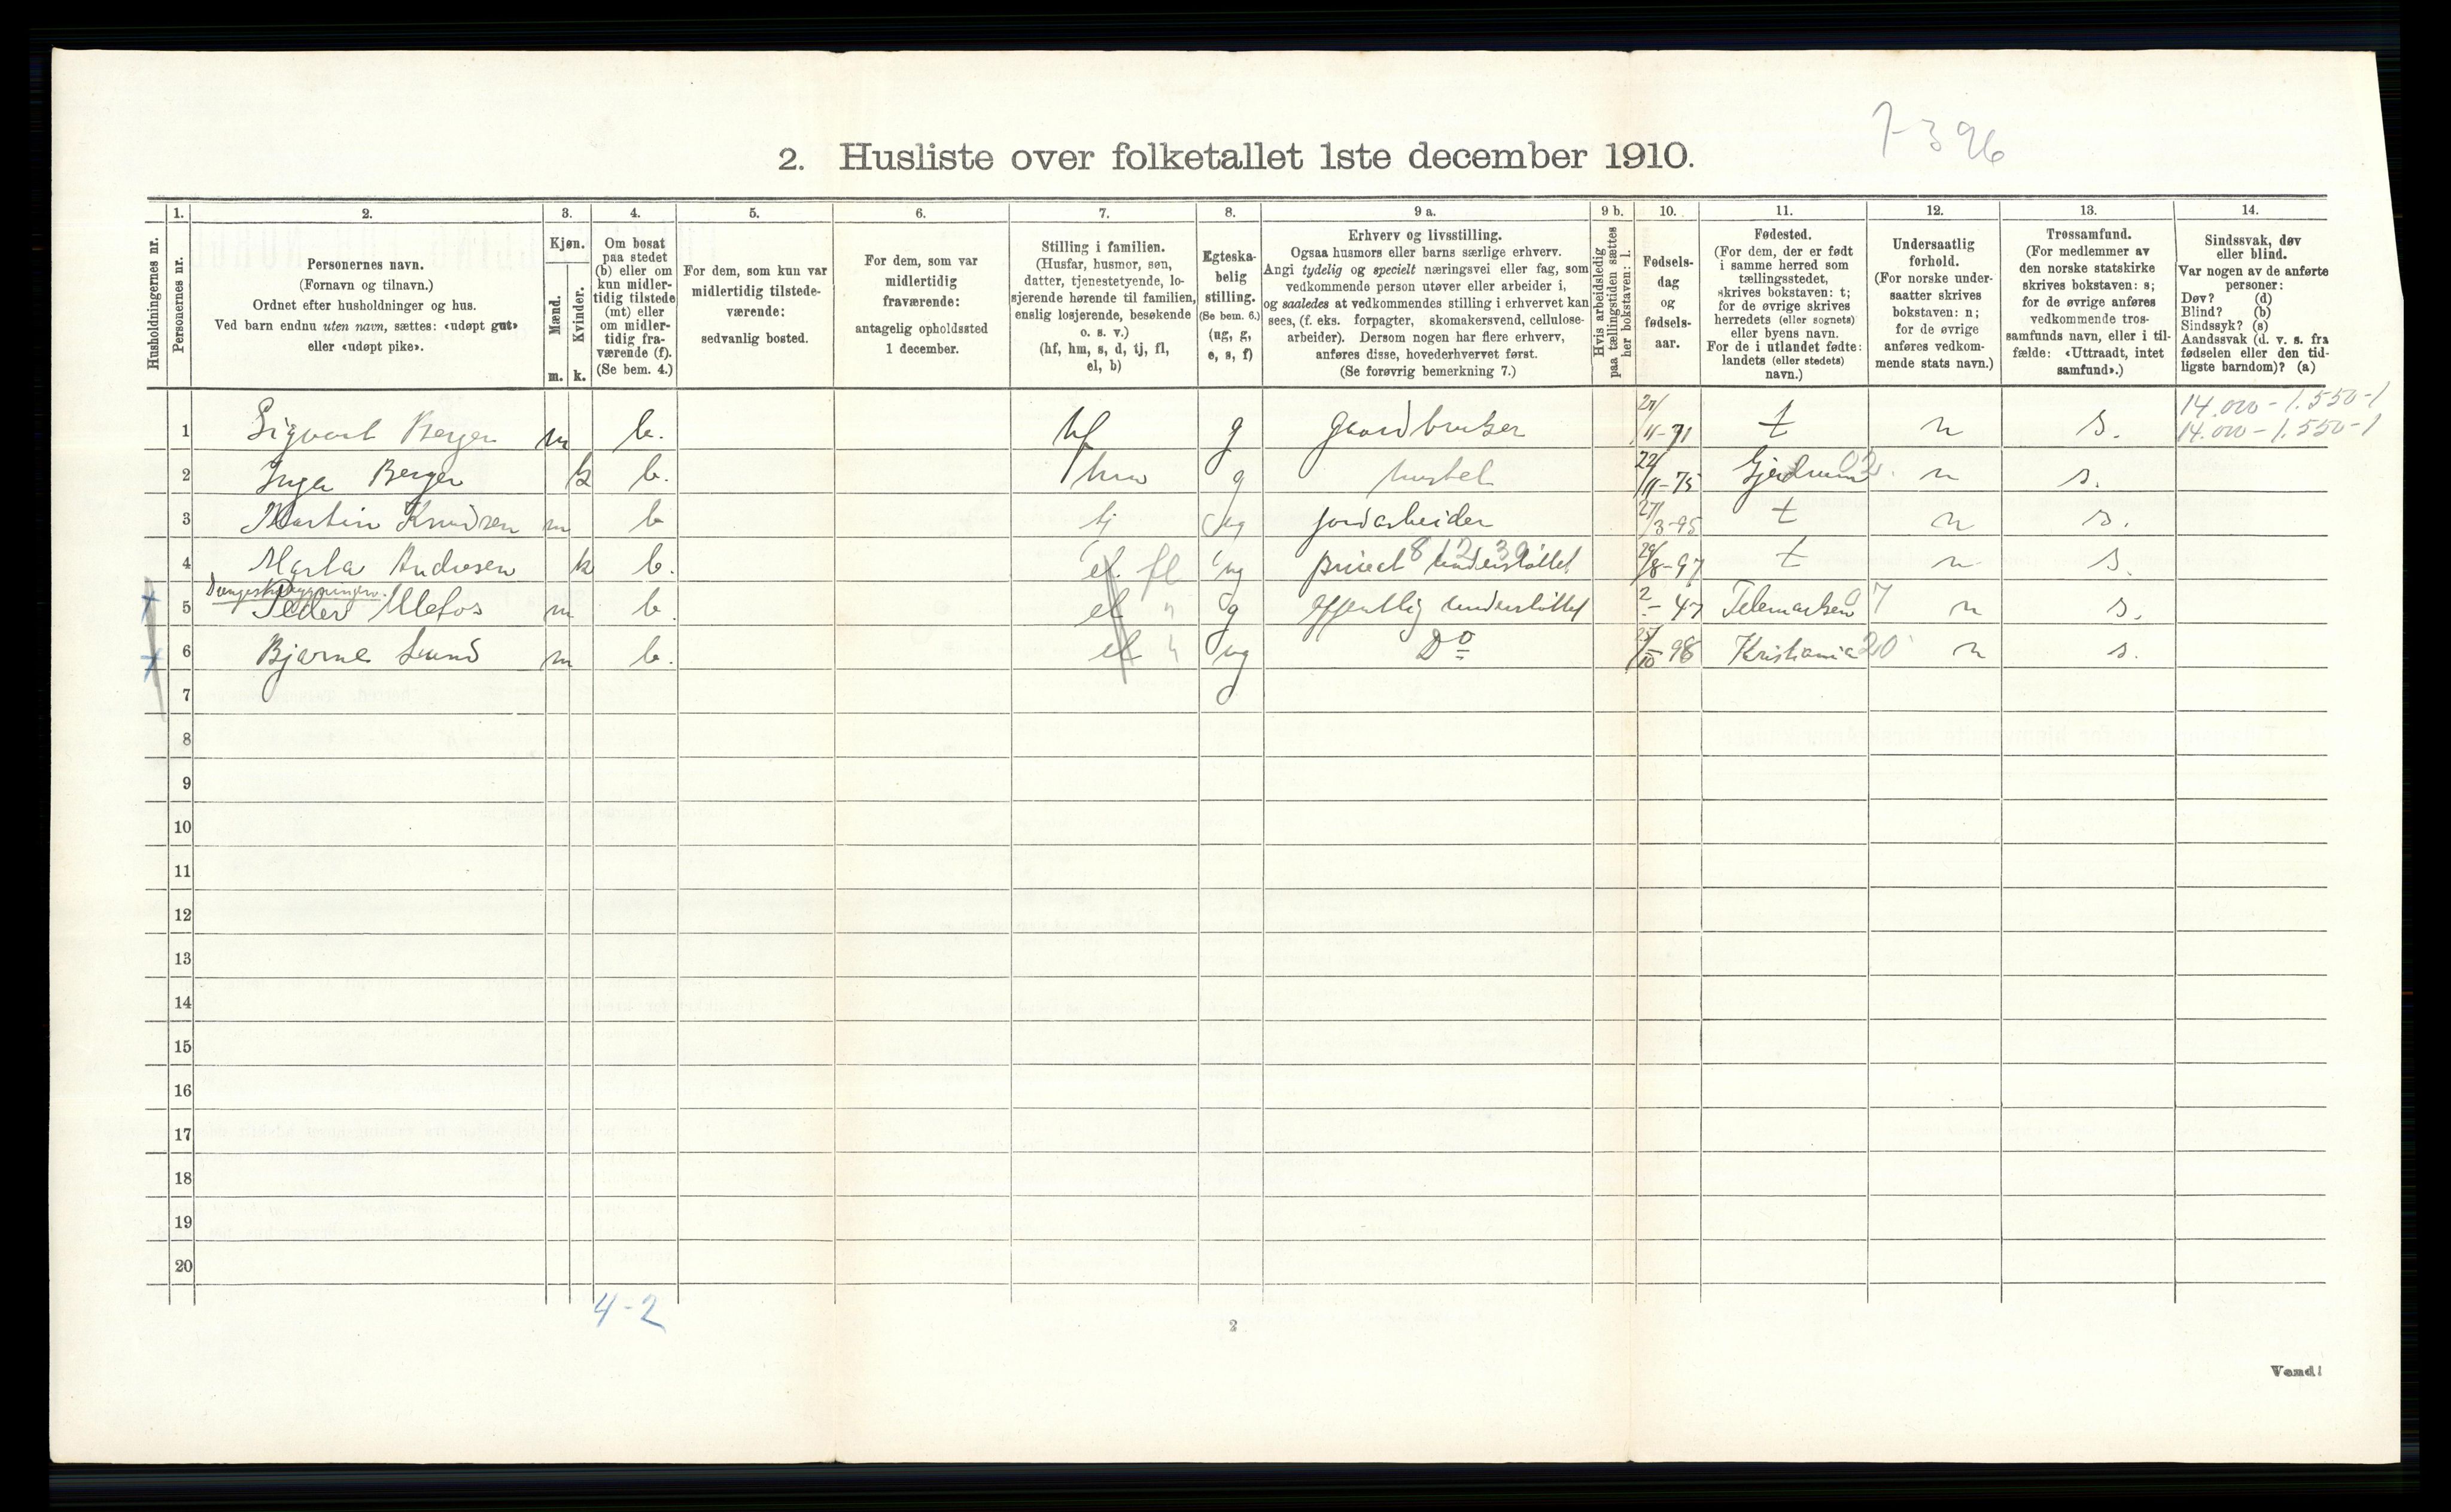 7-396
2. Husliste over folketallet 1ste december 1910.
1. 2. 3. 4. 5. 6. 7. 8. 9 a. 9 b. 10. 11. 12. 13. 14.
Husholdningernes nr.
Personernes nr.
Personernes navn.
(Fornavn og tilnavn.)
Ordnet efter husholdninger og hus.
Ved barn endnu uten navn, sættes: «udøpt gut»
eller «udøpt pike».
Kjøn.
Mænd.
Kvinder.
m. k.
Om bosat
paa stedet
(b) eller om
kun midler-
tidig tilstede
(mt) eller
om midler-
tidig fra-
værende (f).
(Se bem. 4.)
For dem, som kun var
midlertidig tilstede-
værende:
sedvanlig bosted.
For dem, som var
midlertidig
fraværende:
antagelig opholdssted
1 december.
Stilling i familien.
(Husfar, husmor, søn,
datter, tjenestetyende, lo-
sjerende hørende til familien,
enslig losjerende, besøkende
o. s. v.)
(hf, hm, s, d, tj, fl,
el, b)
Egteska-
belig
stilling.
(Se bem. 6.)
(ug, g,
e, s, f)
Erhverv og livsstilling.
Ogsaa husmors eller barns særlige erhverv.
Angi tydelig og specielt næringsvei eller fag, som
vedkommende person utøver eller arbeider i,
og saaledes at vedkommendes stilling i erhvervet kan
sees, (f. eks. forpagter, skomakersvend, cellulose-
arbeider). Dersom nogen har flere erhverv,
anføres disse, hovederhvervet først.
(Se forøvrig bemerkning 7.)
Hvis arbeidsledig
paa tællingstiden sættes
her bokstaven: l.
Fødsels-
dag
og
fødsels-
aar.
Fødested.
(For dem, der er født
i samme herred som
tællingsstedet,
skrives bokstaven: t;
for de øvrige skrives
herredets (eller sognets)
eller byens navn.
For de i utlandet fødte:
landets (eller stedets)
navn.)
Undersaatlig
forhold.
(For norske under-
saatter skrives
bokstaven: n;
for de øvrige
anføres vedkom-
mende stats navn.)
Trossamfund.
(For medlemmer av
den norske statskirke
skrives bokstaven: s;
for de øvrige anføres
vedkommende tros-
samfunds navn, eller i til-
fælde: «Uttraadt, intet
samfund».)
Sindssvak, døv
eller blind.
Var nogen av de anførte
personer:
Døv? (d)
Blind? (b)
Sindssyk? (s)
Aandssvak (d. v. s. fra
fødselen eller den tid-
ligste barndom)? (a)
14.000 - 1.550-1
1 Sigvart Berger m b. hf g gaardbruker 11-71 t n s. 14.000 - 1.550-1
2 Inga Berger k b. hm g 22/11-75 Gjerdrum 02. n s.
3 Martin Knudsen m b tj ug jordarbeider 27/3-95 t n s.
4 Marta Andresen k b. el. fl ug privat understøttet 29/8-97 t n s.
5 Peder Ulefos m b. el " g offentlig understøttet 2 - 47 Telemarken 07 n s.
6 Bjarne Lund m b. el " ug Do 25/10 98 Kristiania 20 n s.
7
8
9
10
11
12
13
14
15
16
17
18
19
20
4-2
2
Vend!